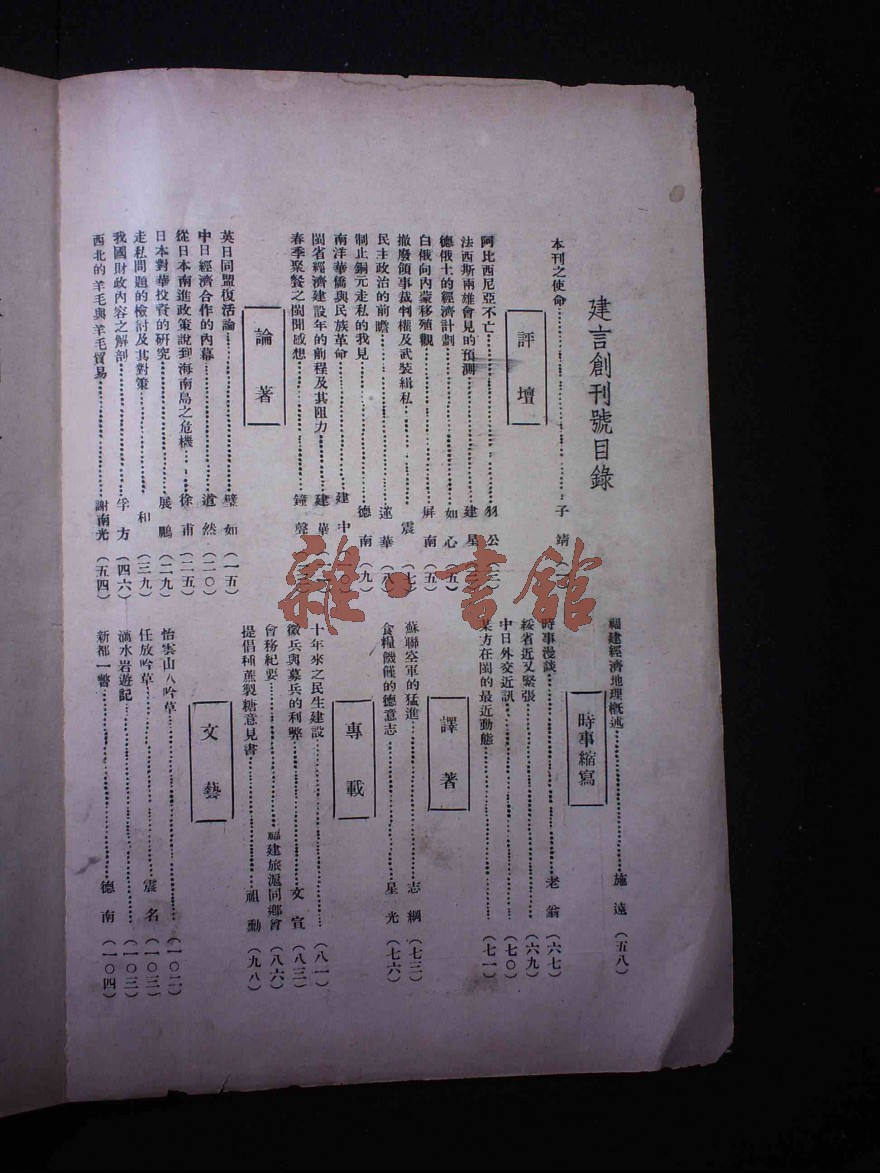 建言創刊號目錄
本刊之使命 子靖
評壇
阿比西尼亞不亡 羽公
法西斯兩雄會見的預測 建星
德俄土的經濟計劃 如心（五）
白俄向內蒙移殖觀 屏南（五）
撤廢領事裁判權及武裝緝私 震（七）
民主政治的前瞻 蓮華（八）
制止銅元走私的我見 德南（九）
南洋華僑與民族革命 建中
閩省經濟建設年的前程及其阻力 建華
春季聚餐之閩聞感想 鐘聲
論著
英日同盟復活論 璧如（一五）
中日經濟合作的內幕 道然（二〇）
從日本南進政策說到海南島之危機 徐甫（二五）
日本對華投資的研究 展鵬（二九）
走私問題的檢討及其對策 和（三九）
我國財政內容之解剖 孚方（四六）
西北的羊毛與羊毛貿易 謝南光（五四）
福建經濟地理概述 施遠（五八）
時事縮寫
時事漫談 老翁（六七）
綏省近又緊張 （六九）
中日外交近訊 （七〇）
某方在閩的最近動態 （七一）
譯著
蘇聯空軍的猛進 志綱（七三）
食糧饑饉的德意志 星光（七六）
專載
十年來之民生建設 （八一）
徵兵與募兵的利弊 文宣（八三）
會務紀要 福建旅滬同鄉會（八六）
提倡種蔗製糖意見書 祖勳（九八）
文藝
怡雲山人吟草 （一〇二）
任放吟草 震名（一〇三）
滴水岩遊記 （一〇三）
新都一瞥 德南（一〇四）
雜·書館